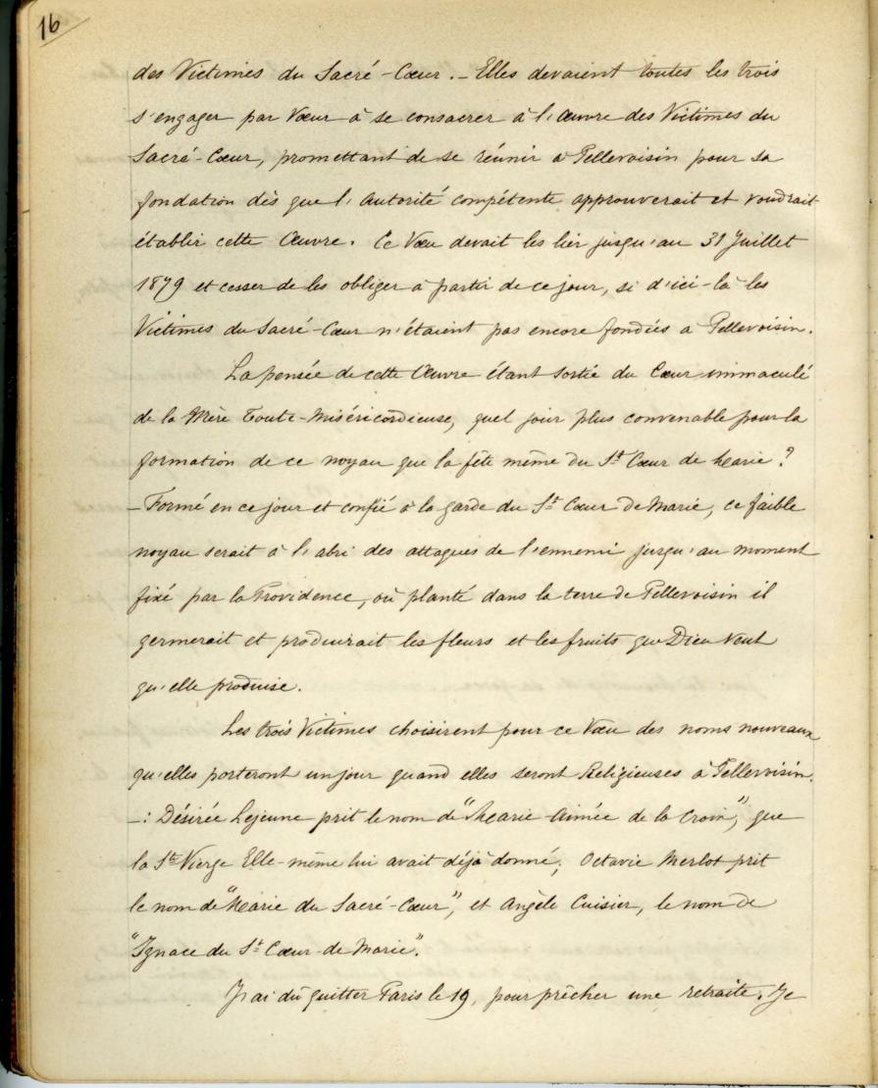 16
des Victimes du Sacré-Cœur. – Elles devaient toutes les trois
s'engager par Vœu à se consacrer à l'Œuvre des Victimes du
Sacré-Cœur, promettant de se réunir à Pellevoisin pour sa
fondation dès que l'Autorité compétente approuverait et voudrait
établir cette Œuvre. Ce Vœu devait les lier jusqu'au 31 Juillet
1879 et cesser de les obliger à partir de ce jour, si d'ici-là les
Victimes du Sacré-Cœur n'étaient pas encore fondées à Pellevoisin.
La pensée de cette Œuvre étant sortie du Cœur immaculé
de la Mère Toute-Miséricordieuse, quel jour plus convenable pour la
formation de ce noyau que la fête même du St Cœur de Marie ?
– Formé en ce jour et confié à la garde du St Cœur de Marie, ce faible
noyau serait à l'abri des attaques de l'ennemi jusqu'au moment
fixé par la Providence, où planté dans la terre de Pellevoisin il
germerait et produirait les fleurs et les fruits que Dieu veut
qu'elle produise.
Les trois Victimes choisirent pour ce Vœu des noms nouveaux
qu'elles porteront un jour quand elles seront Religieuses à Pellevoisin.
–: Désirée Lejeune prit le nom de "Marie-Aimée de la Croix", que
la Ste Vierge Elle-même lui avait déjà donné; Octavie Merlot prit
le nom de "Marie du Sacré-Cœur", et Angèle Cuisier, le nom de
"Ignace du St Cœur de Marie".
J'ai dû quitter Paris le 19, pour prêcher une retraite. Je